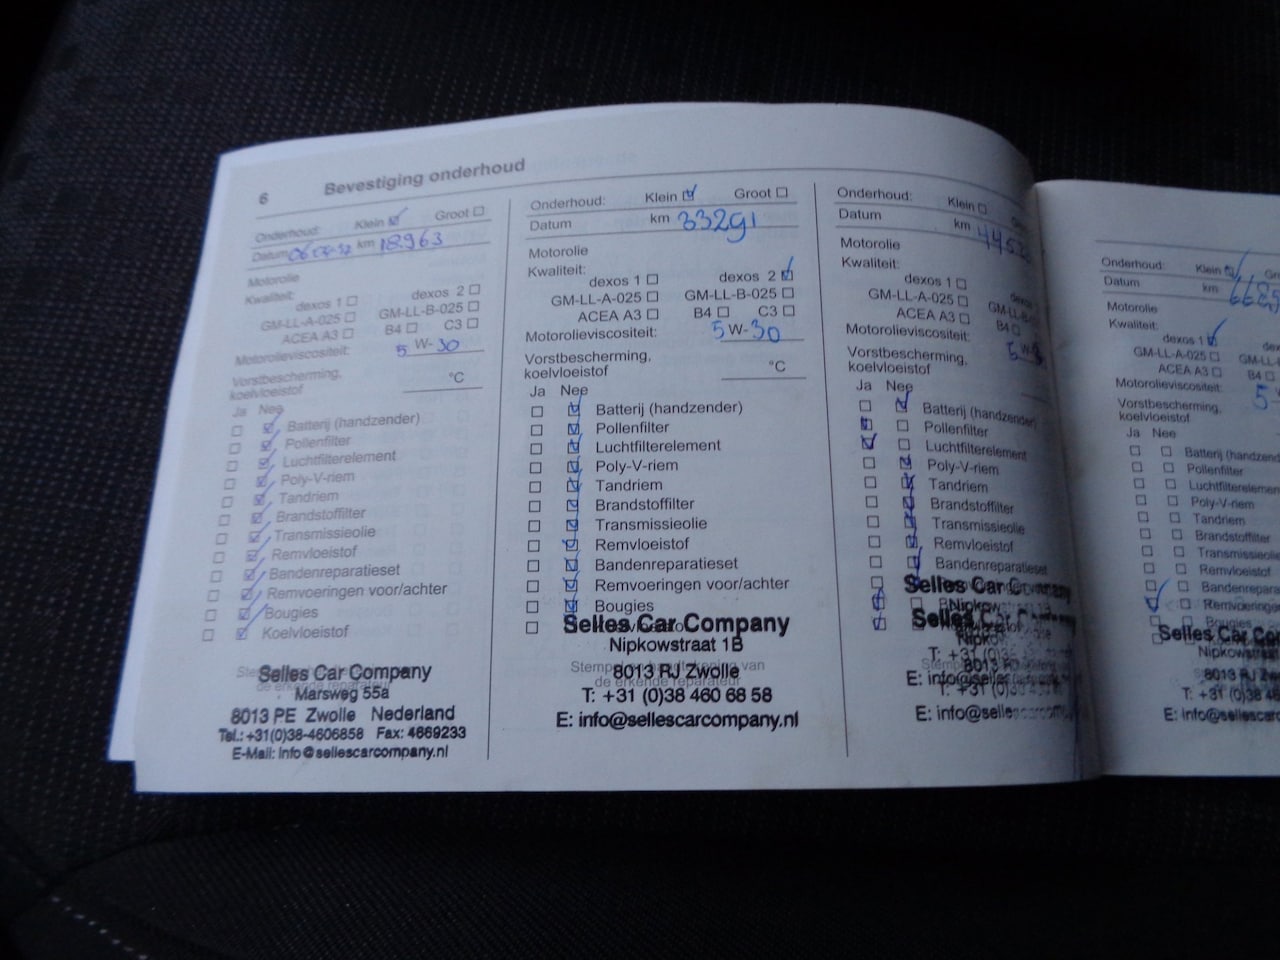 6 Bevestiging onderhoud
Onderhoud: Klein Groot
Datum km 18963
Motorolie
Kwaliteit:
dexos 1 dexos 2
GM-LL-A-025 GM-LL-B-025
ACEA A3 B4 C3
Motorolieviscositeit: 5 W-30
Vorstbescherming,
koelvloeistof °C
Ja Nee
Batterij (handzender)
Pollenfilter
Luchtfilterelement
Poly-V-riem
Tandriem
Brandstoffilter
Transmissieolie
Remvloeistof
Bandenreparatieset
Remvoeringen voor/achter
Bougies
Koelvloeistof
Selles Car Company
Marsweg 55a
8013 PE Zwolle Nederland
Tel.: +31(0)38-4606858 Fax: 4669233
E-Mail: info@sellescarcompany.nl
Onderhoud: Klein Groot
Datum km 33291
Motorolie
Kwaliteit:
dexos 1 dexos 2
GM-LL-A-025 GM-LL-B-025
ACEA A3 B4 C3
Motorolieviscositeit: 5 W-30
Vorstbescherming,
koelvloeistof °C
Ja Nee
Batterij (handzender)
Pollenfilter
Luchtfilterelement
Poly-V-riem
Tandriem
Brandstoffilter
Transmissieolie
Remvloeistof
Bandenreparatieset
Remvoeringen voor/achter
Bougies
Selles Car Company
Nipkowstraat 1B
Stempel en handtekening van
8013 RJ Zwolle
de erkende reparateur
T: +31 (0)38 460 68 58
E: info@sellescarcompany.nl
Onderhoud: Klein
Datum km
Motorolie
Kwaliteit:
dexos 1
GM-LL-A-025
ACEA A3 B4
Motorolieviscositeit: 5
Vorstbescherming,
koelvloeistof
Ja Nee
Batterij (handzender)
Pollenfilter
Luchtfilterelement
Poly-V-riem
Tandriem
Brandstoffilter
Transmissieolie
Remvloeistof
Bandenreparatieset
Selles Car Company
Selles
T: +31
E:
E:
Onderhoud: Klein
Datum km
Motorolie
Kwaliteit:
dexos 1
GM-LL-A-025
ACEA A3 B4
Motorolieviscositeit: 5
Vorstbescherming,
koelvloeistof
Ja Nee
Pollenfilter
Poly-V-riem
Tandriem
Brandstoffilter
Remvloeistof
Bougies
Selles Car
T: +31 (0)38